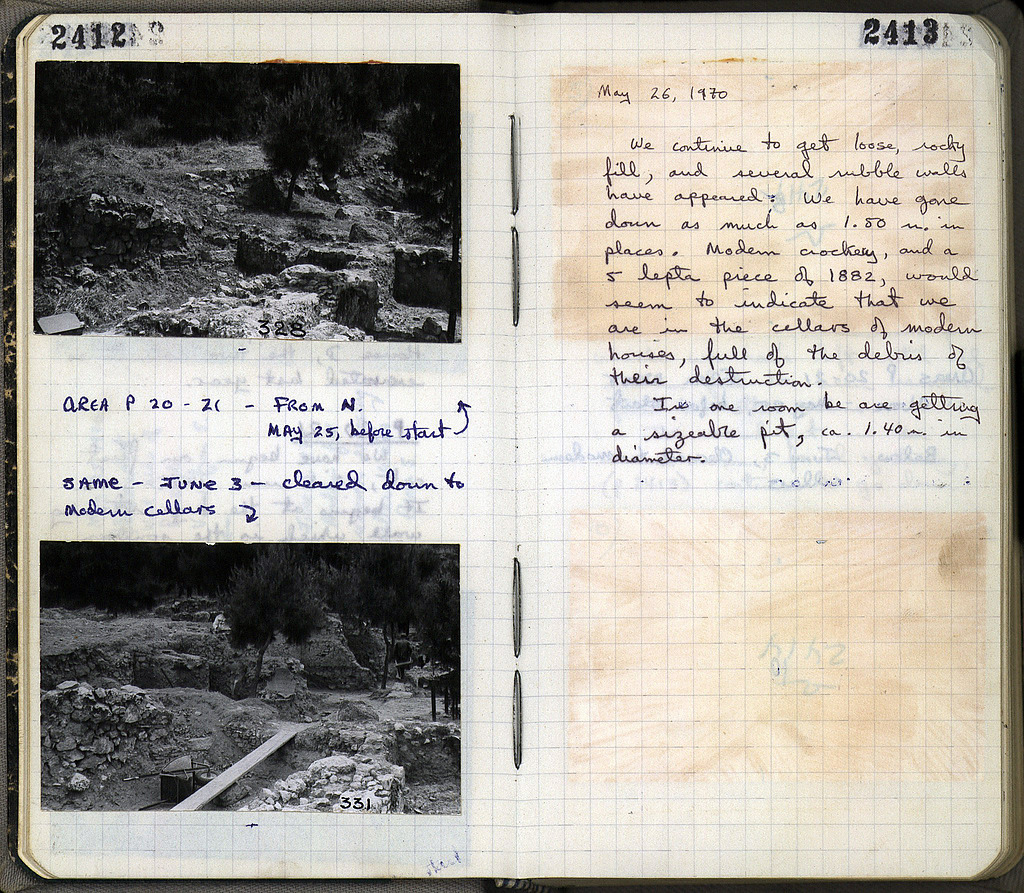 2412
328
AREA P 20 - 21 - FROM N.
MAY 25, before start
SAME - JUNE 3 - cleared down to
modern cellars
331
2413
May 26, 1970
We continue to get loose, rocky
fill, and several rubble walls
have appeared. We have gone
down as much as 1.50 m. in
places. Modern crockery, and a
5 lepta piece of 1882, would
seem to indicate that we
are in the cellars of modern
houses, full of the debris of
their destruction.
In one room be are getting
a sizeable pit, ca. 1.40 m. in
diameter.